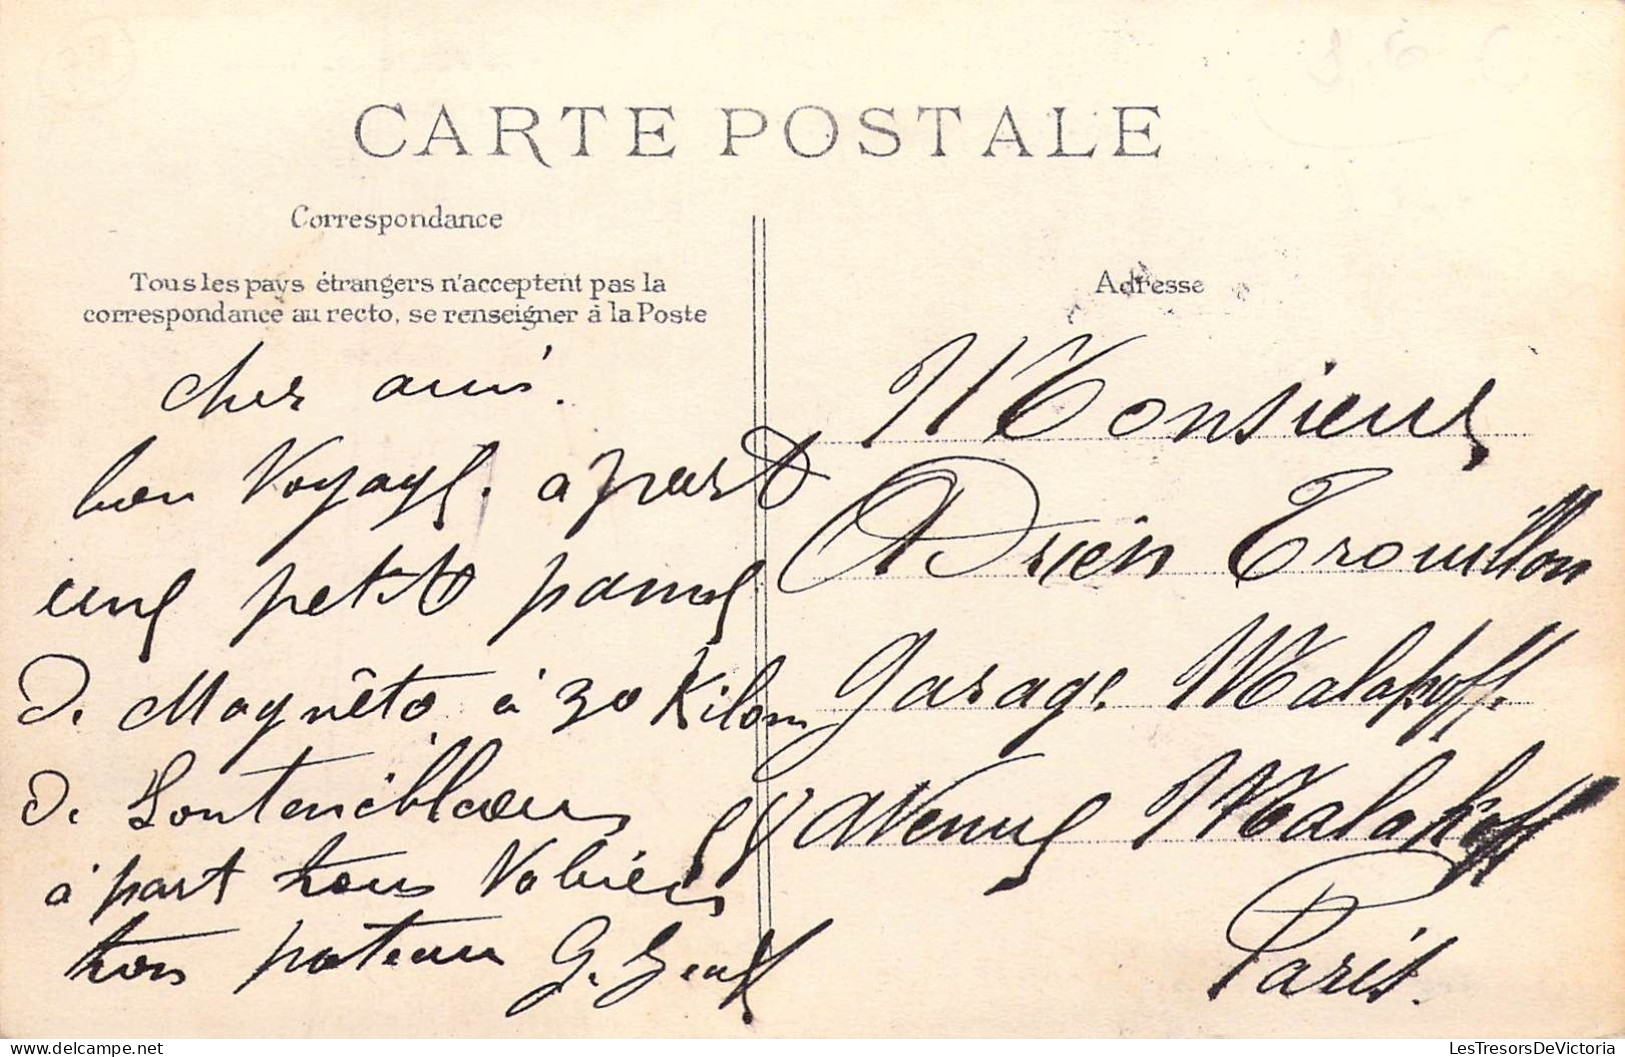 CARTE POSTALE
Correspondance
Tous les pays étrangers n'acceptent pas la
correspondance au recto, se renseigner à la Poste
cher ami.
bon Voyage. a part
une petite panne
De Magnêto à 30 Kilom
De Fontenibleau
à part tous
ton G.
Adresse
Monsieur
Adrien Trouillon
Garage Malakoff.
Avenue Malakoff
Paris.
LesTresorsDeVictoria